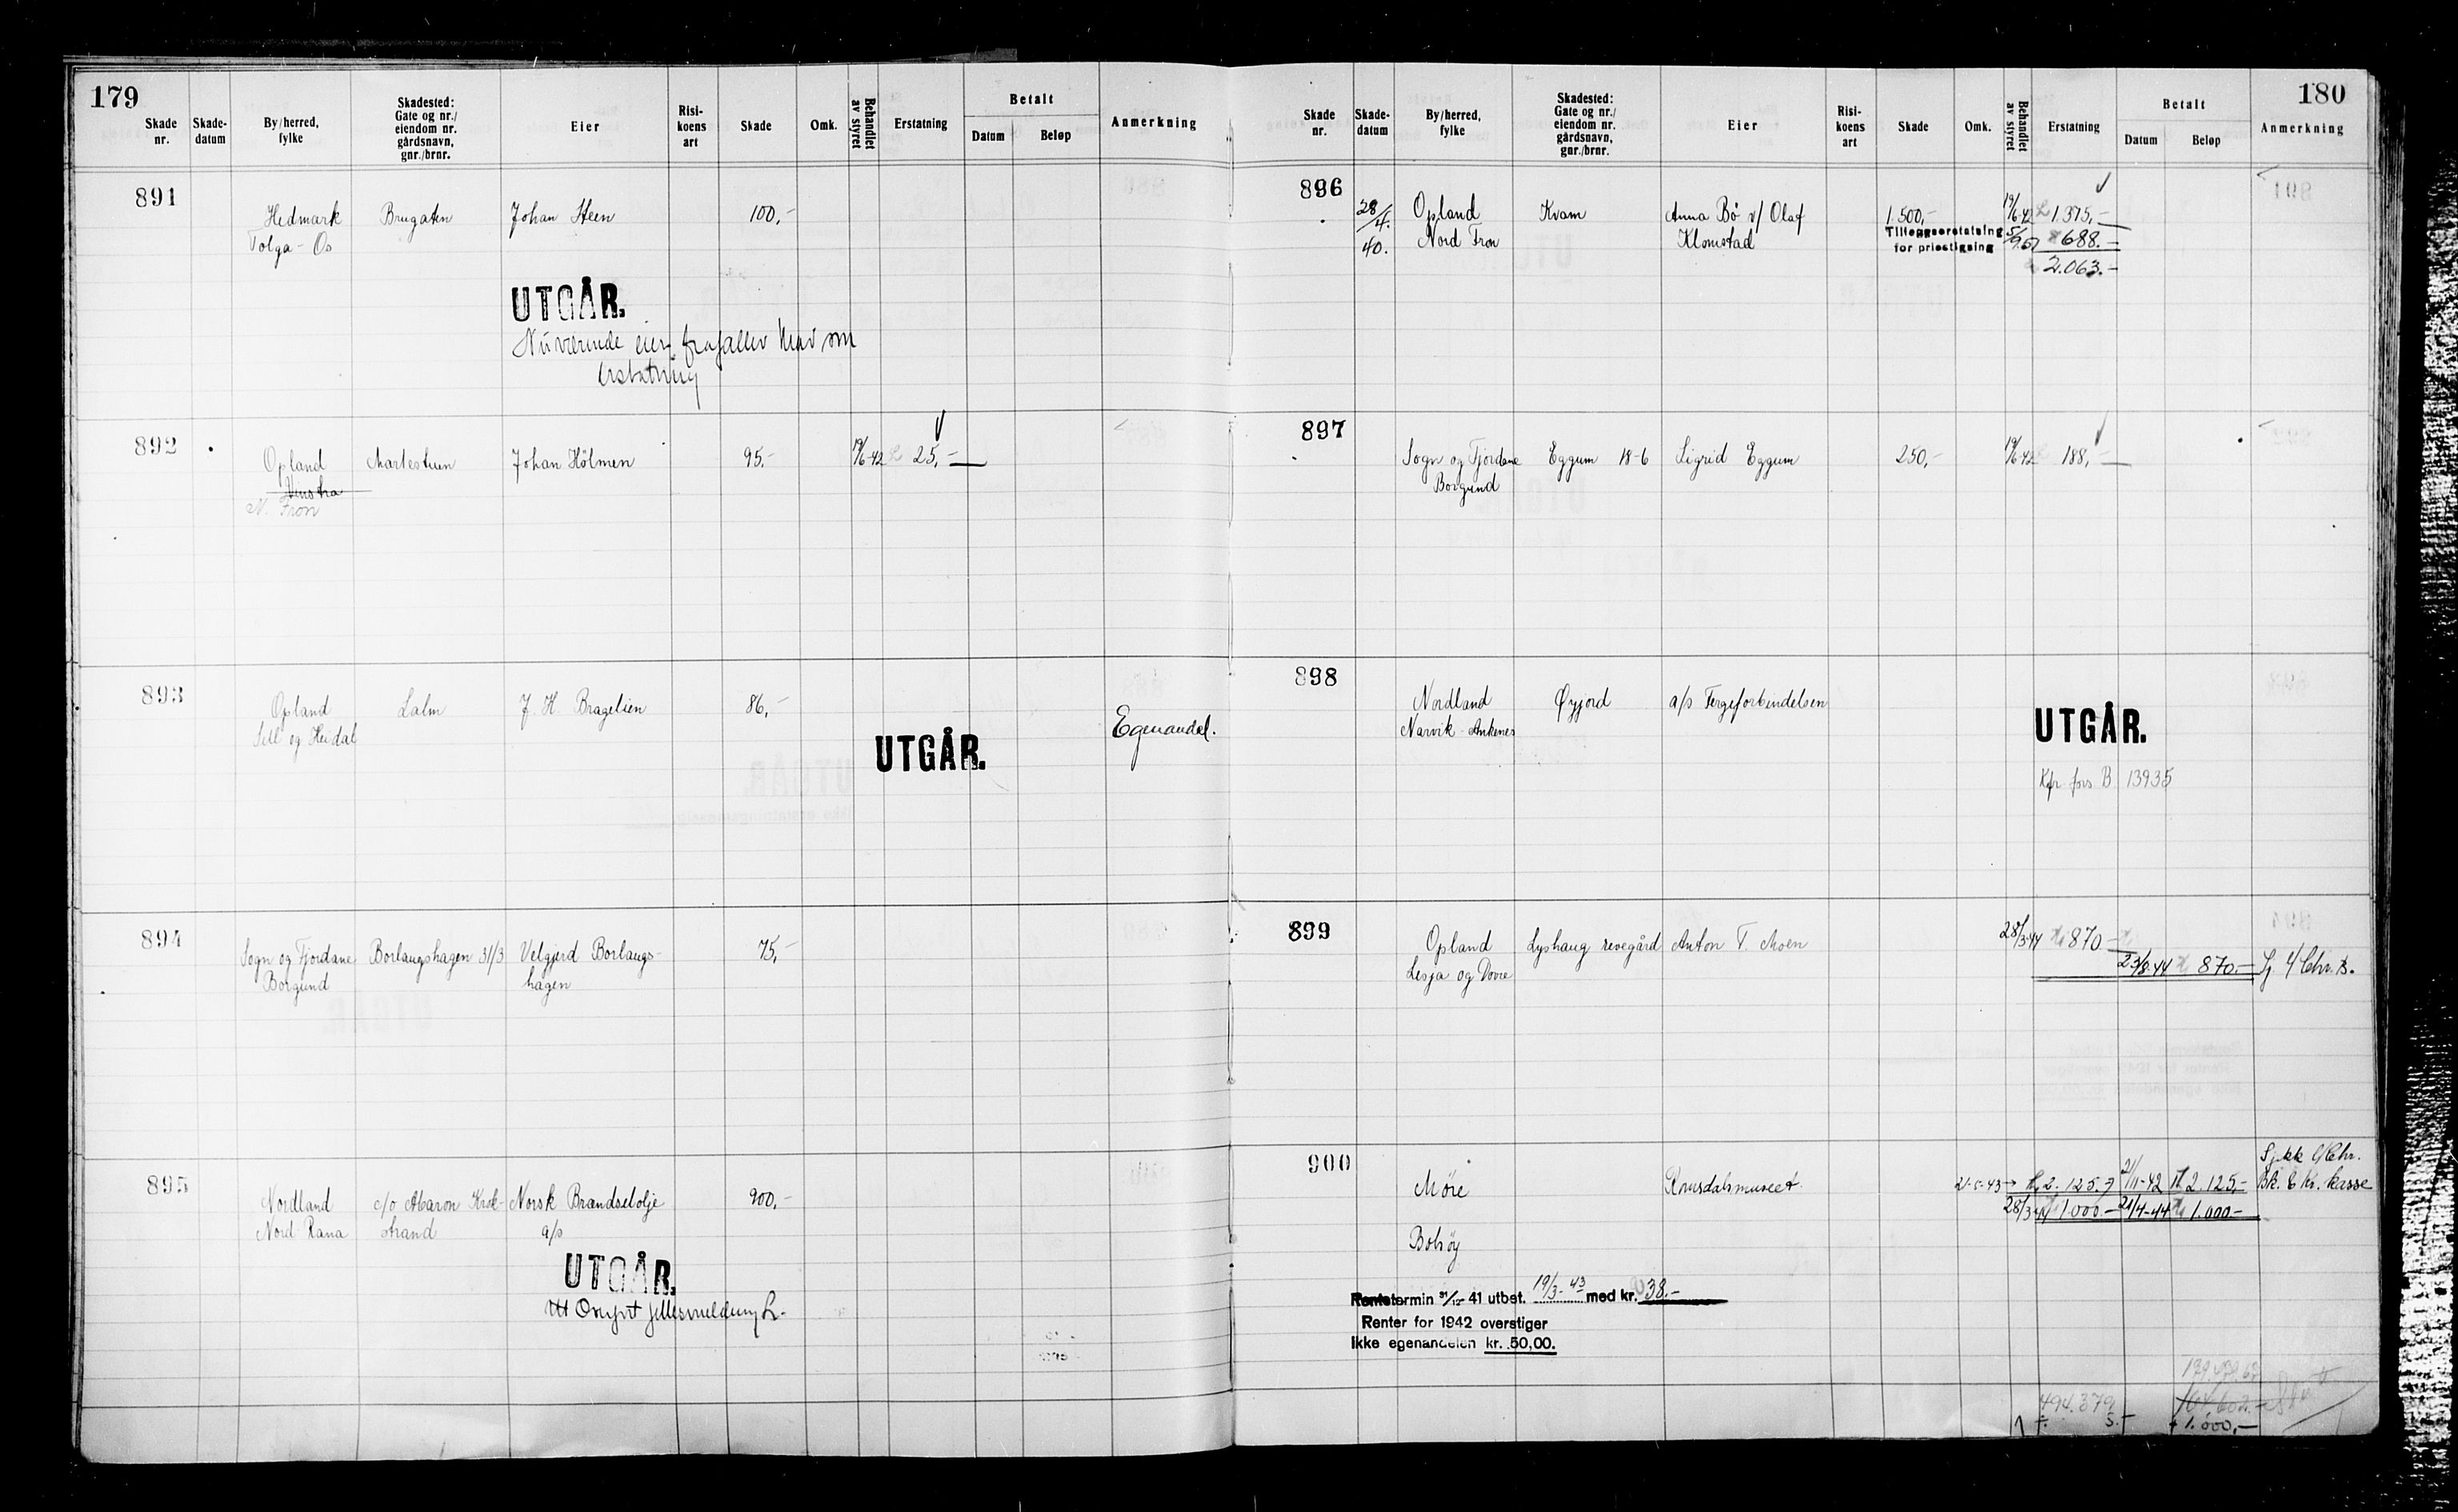 179
Skade nr.
Skade-datum
By/herred, fylke
Skadested: Gate og nr./ eiendom nr. gårdsnavn, gnr./brnr.
Eier
Risi-koens art
Skade
Omk.
Behandlet av styret
Erstatning
Betalt
Datum
Beløp
Anmerkning
891
Hedmark Brugaten Johan Steen 100,-
Tolga - Os
UTGÅR.
Nuværende eier frafaller krav om
erstatning
892
Opland Johan Hölmen 95.- 19/6-42 25,-
Vinstra
N. Fron
893
Opland Lalm J. H. Bragelien 86,-
Sell og Heidal
UTGÅR.
Egenandel.
894
Sogn og Fjordane Borlaugshagen 31/3 Velgjerd Borlaugs- 75,-
Borgund hagen
895
Nordland c/o Aaron Krok- Norsk Brændselolje 900,-
Nord Rana strand a/s
UTGÅR.
180
Skade nr.
Skade-datum
By/herred, fylke
Skadested: Gate og nr./ eiendom nr. gårdsnavn, gnr./brnr.
Eier
Risi-koens art
Skade
Omk.
Behandlet av styret
Erstatning
Betalt
Datum
Beløp
Anmerkning
896
28/4. 40. Opland Kvam Anna Bø v/ Olaf 1.500,- 19/6-42 1.375,-
Nord Fron Klomstad Tilleggserstatning 688.-
for prisstigning
2.063.-
897
Sogn og Fjordane Eggum 18-6 Sigrid Eggum 250,- 19/6-42 188,-
Borgund
898
Nordland Øyjord a/s Fergeforbindelsen
Narvik - Ankenes
UTGÅR.
B 13935
899
Opland Lyshaug revegård Anton T. Moen 28/3-44 870
Lesja og Dovre 23/8-44 870.-
900
Møre Romsdalsmuseet 21-5-43 2.125.- 21/11-42 2.125,- Bk. & Kr. kasse
28/3-44 1.000.- 21/4-44 1.000-
Bolsøy
Rentetermin 31/12- 41 utbet. 19/3- 43 med kr. 38.-
Renter for 1942 overstiger
ikke egenandelen kr. 50,00.
494.379
1.000,-